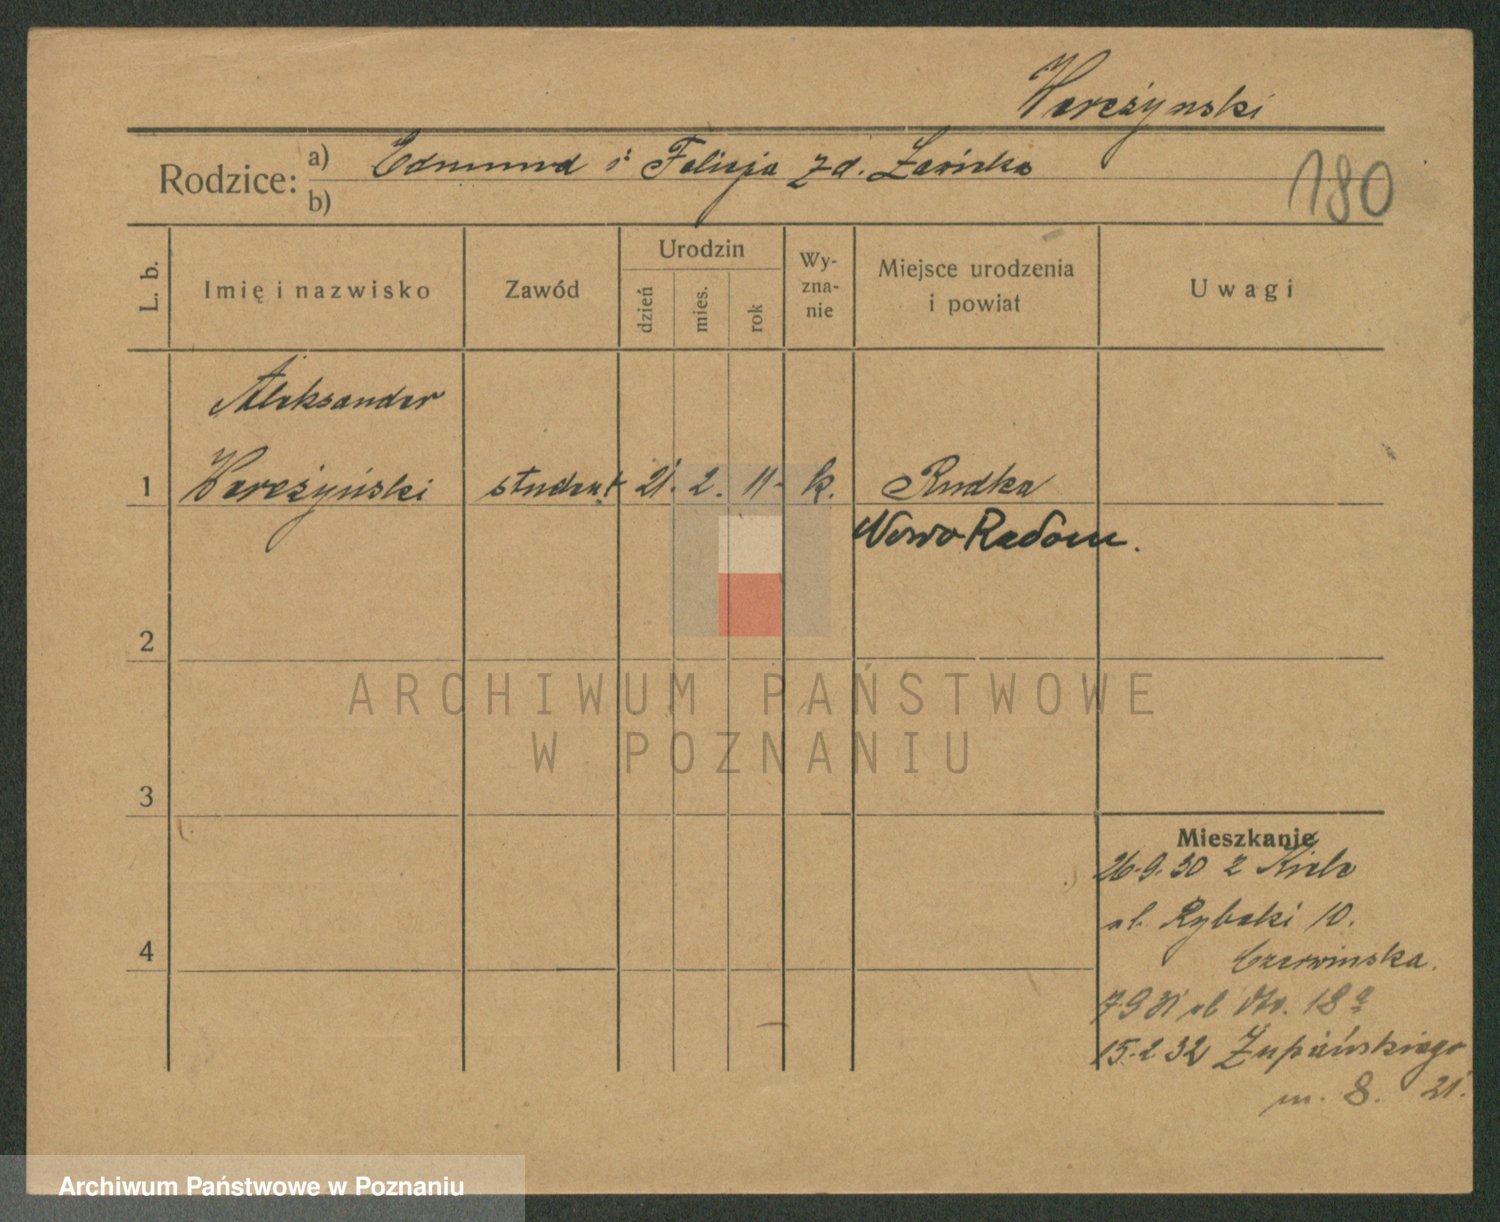 Wereżynski
Rodzice: a) Edmund i Felicja z d. Żaricka
b)
180
L. b.
Imię i nazwisko
Zawód
Urodzin
dzień
mies.
rok
Wy-
zna-
nie
Miejsce urodzenia
i powiat
Uwagi
Aleksander
1 Wereżyński student 21. 2. 11. k. Rudka
Nowo Radom.
2
ARCHIWUM PAŃSTWOWE
W POZNANIU
3
4
Mieszkanie
26.9.30 z Kielc
ul. Rybaki 10.
Czerwinska.
7 9 31 ul 18a
15.2 32 Żupańskiego
m. 8. 21.
Archiwum Państwowe w Poznaniu